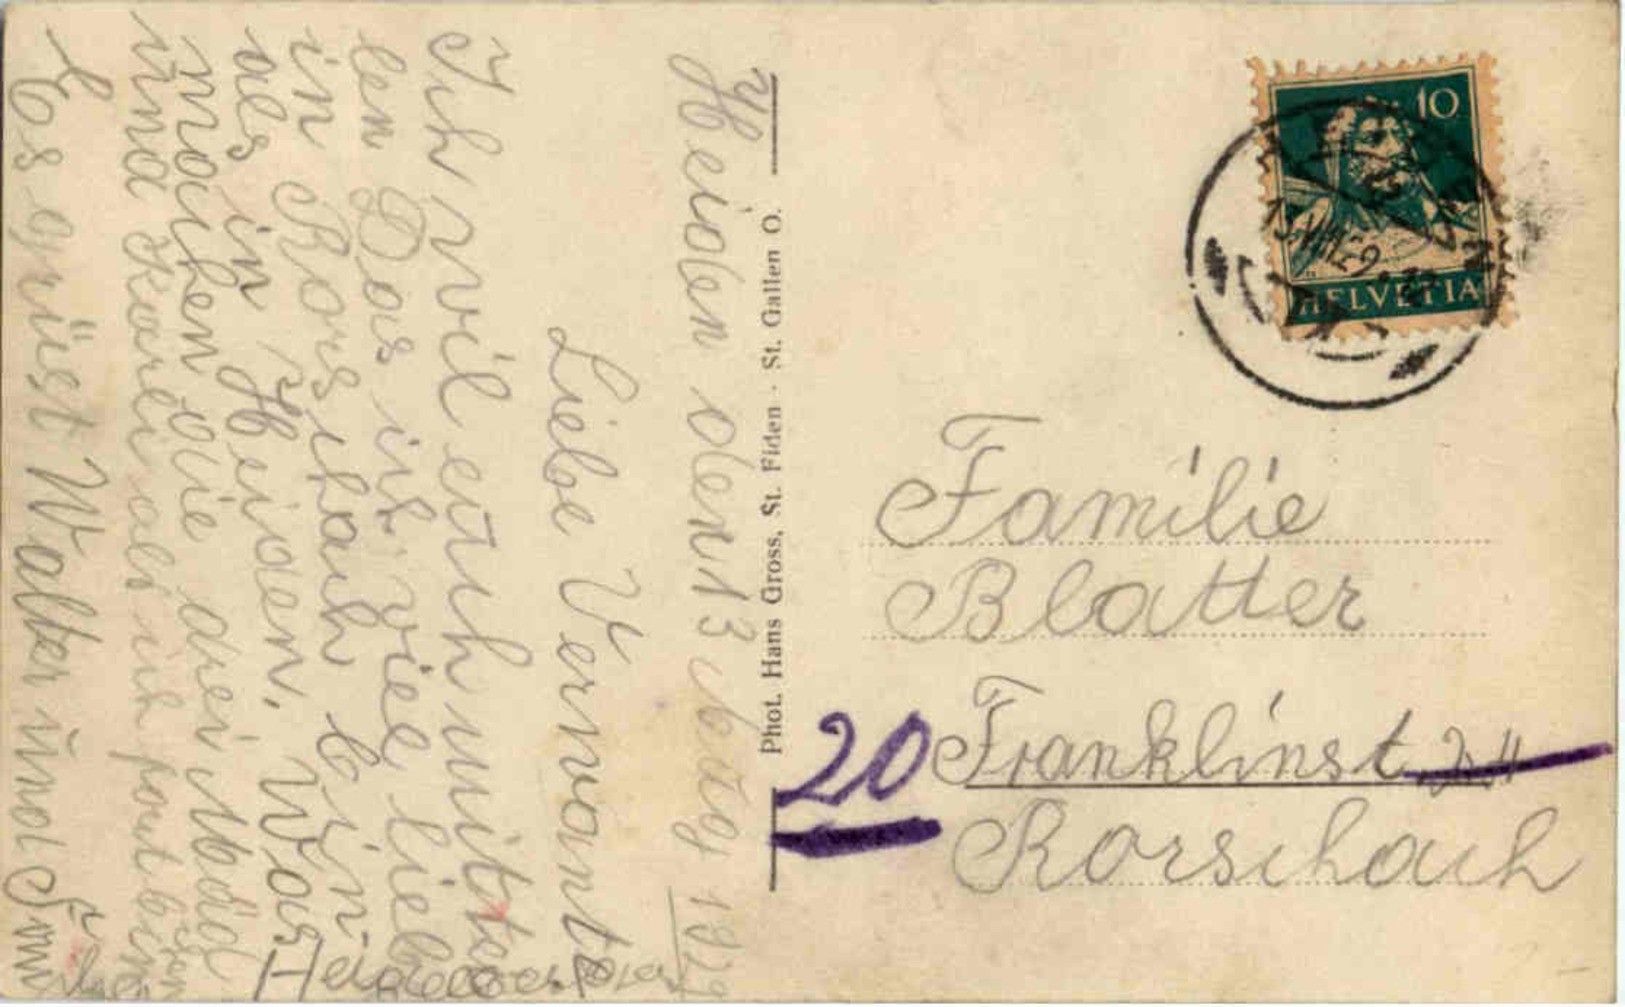 Heiden den 13 1929
Liebe Verwante
Ich wil euch mitte
len Das ich viel lieb
in Rorschach bin
als in Heiden. Was
machen die drei
und Kareli als ich fort bin
Es grüest Walter und
Phot. Hans Gross, St. Fiden - St. Gallen O.
10
HELVETIA
Familie
Blatter
20 Franklinst
Rorschach